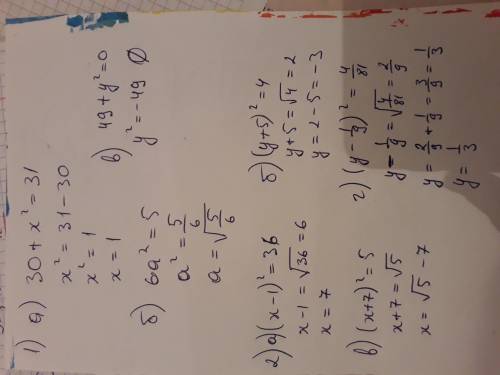 1) а) 30 + x² = 31
x² = 31 - 30
x² = 1
x = 1
б) 6a² = 5
a² = 5/6
a = √5/6
в) 49 + y² = 0
y² = -49 ∅
2) а) (x - 1)² = 36
x - 1 = √36 = 6
x = 7
б) (y + 5)² = 4
y + 5 = √4 = 2
y = 2 - 5 = -3
в) (x + 7)² = 5
x + 7 = √5
x = √5 - 7
г) (y - 1/9)² = 4/81
y - 1/9 = √4/81 = 2/9
y = 2/9 + 1/9 = 3/9 = 1/3
y = 1/3